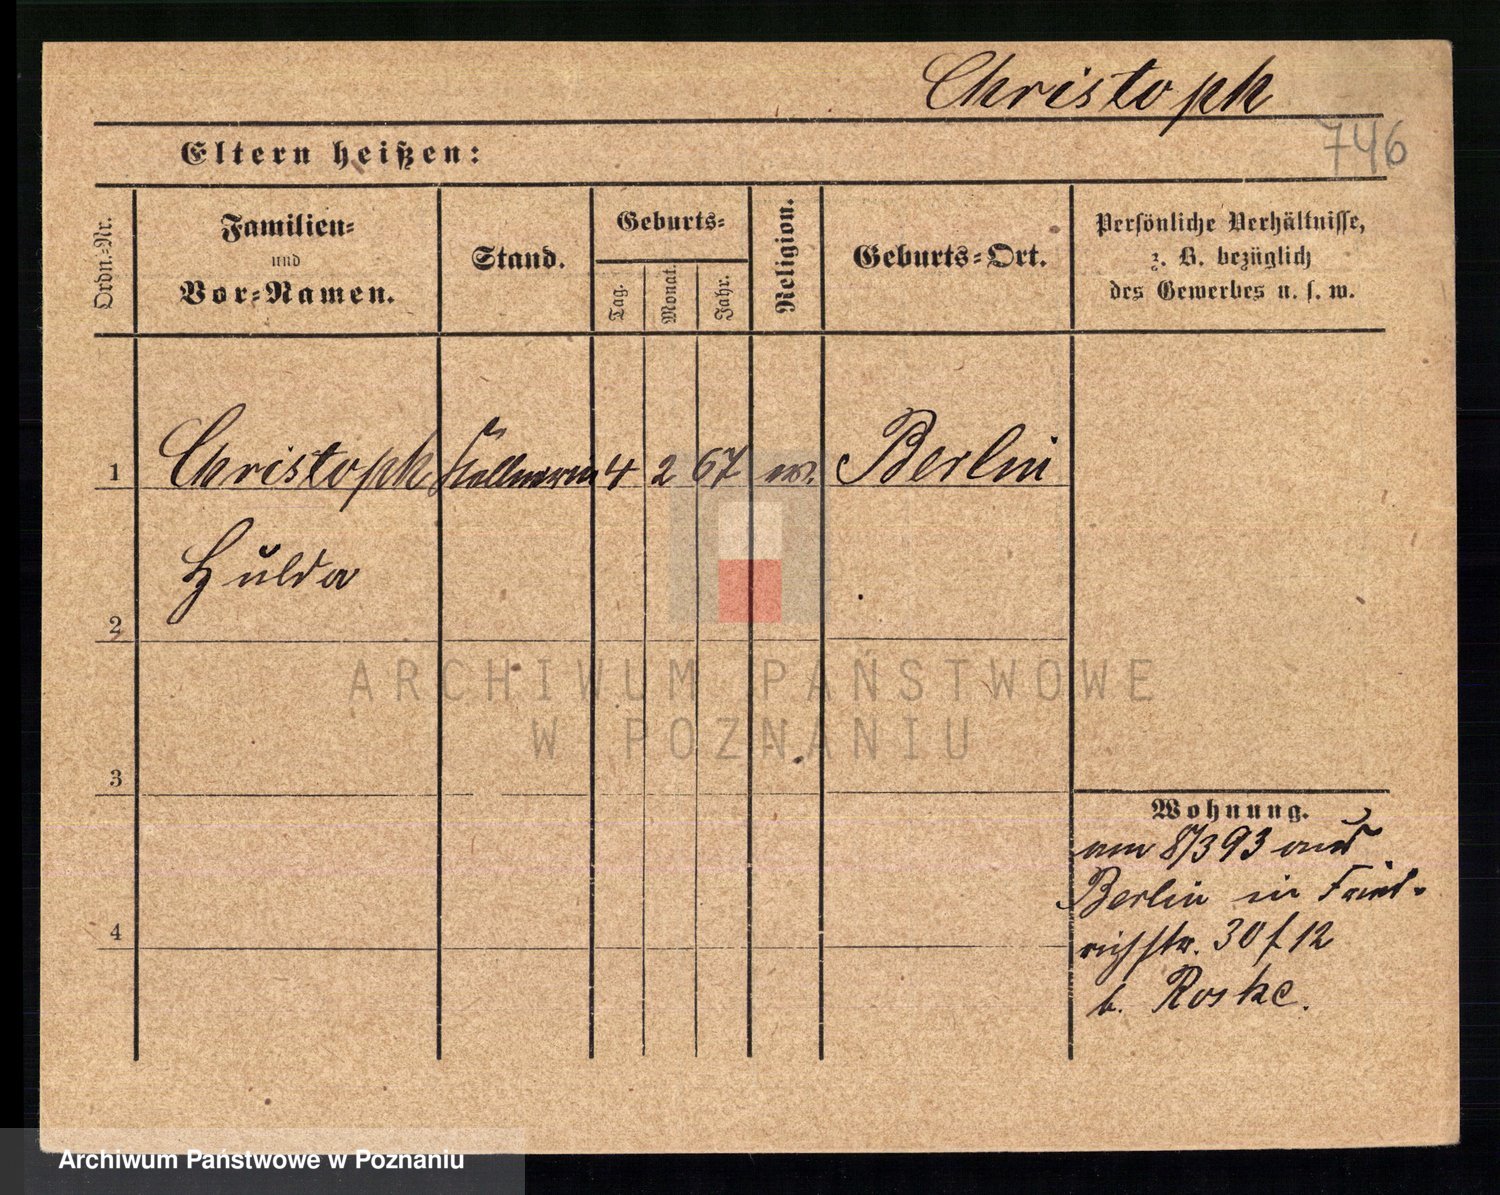 Christoph
746
Eltern heißen:
Ordn.-Nr.
Familien-
und
Vor-Namen.
Stand.
Geburts-
Tag.
Monat.
Jahr.
Religion.
Geburts-Ort.
Persönliche Verhältnisse,
z. B. bezüglich
des Gewerbes u. s. w.
1 Christoph Kellnerin 4 2 67 ev. Berlin
Hulda
2
ARCHIWUM PAŃSTWOWE
W POZNANIU
3
Wohnung.
am 8/3 93 aus
Berlin in Fried-
4
richstr. 30 f 12
b. Roske.
Archiwum Państwowe w Poznaniu